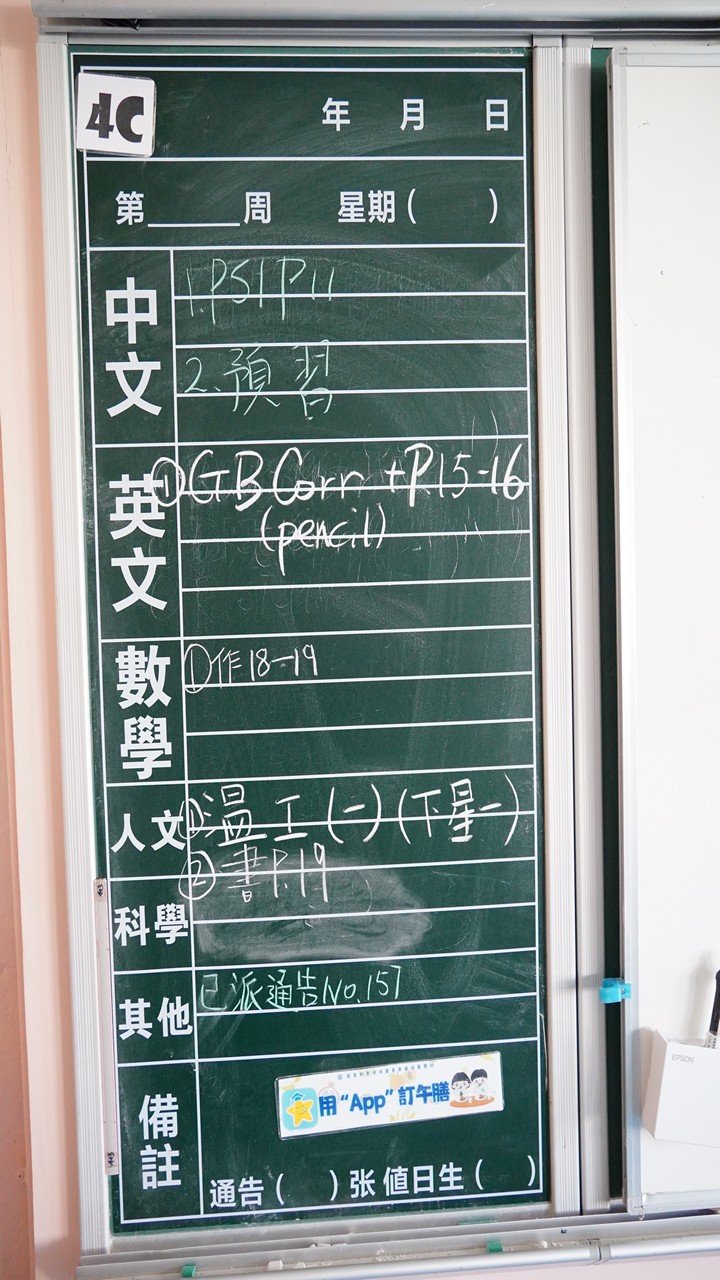 4C
年 月 日
第______周 星期( )
中文
1 P51P11
2.預習
英文
①GB Corr +P.15-16
(pencil)
數學
①作18-19
人文
①溫工(一)(下星一)
②書P.19
科學
其他
已派通告No.157
備註
用“App”訂午膳
通告( )张 值日生( )
EPSON